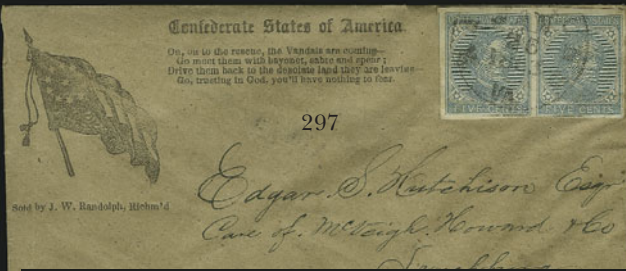 Confederate States of America
On, on to the rescue, the Vandals are coming—
Go meet them with bayonet, sabre and spear;
Drive them back to the desolate land they are leaving—
Go, trusting in God, you'll have nothing to fear.
FIVE CENTS
FIVE CENTS
297
Sold by J. W. Randolph, Richm'd
Edgar. S. Hutchison Esqr
Care of. McVeigh. Howard & Co